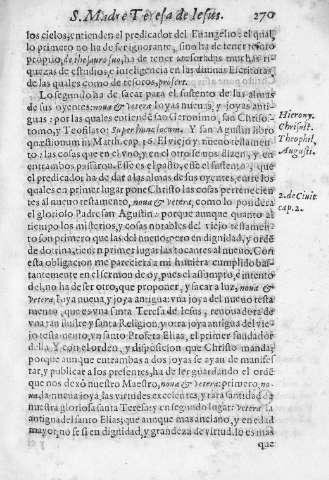 S. Madre Teresa de Iesus. 270
los cielos, entienden el predicador del Euangelio: el qual,
lo primero no ha de ser ignorante, sino ha de tener tesoro
proprio, de thesauro suo, ha de tener atesoradas muchas ri
quezas de estudios, e inteligencia en las diuinas Escrituras,
de las quales como de tesoro, profert.
Lo segundo ha de sacar para el sustento de las almas
de sus oyentes: noua & vetera joyas nueuas, y joyas anti-
guas: por las quales entiende san Geronimo, san Chriso-
tomo, y Teofilato: Super hunc locum. Y san Agustin libro
quæstionum in Matth. cap. 16. El viejo y nueuo testamen-
to: las cosas que en el vno, y en el otro se nos dizen, y en
entrambos passaron. Esse es el pasto, esse el sustento, que
el predicador ha de dar a las almas de sus oyentes, entre los
quales en primer lugar pone Christo las cosas pertenecien
tes al nueuo testamento, noua & vetera, como lo pondera
el glorioso Padre san Agustin: porque aunque quanto al
tiempo los misterios, y cosas notables del viejo testamen-
to son primero que las del nueuo, pero en dignidad, y ordē
de dotrina, tienē primer lugar las tocantes al nueuo. Con
esta obligacion me pareciera a mi huuiera cumplido bas-
tantemente en el sermon de oy, pues el assumpto, e intento
del, no ha de ser otro, que proponer, y sacar a luz, noua &
vetera. Ioya nueua, y joya antigua: vna joya del nueuo testa
mento, que es vna santa Teresa de Iesus, renouadora de
vna tan ilustre y santa Religion, y otra joya antigua del vie-
jo testamento, vn santo Profeta Elias, el primer fundador
della. Y con el orden, y disposicion que Christo manda,
porque aunque entrambas a dos joyas se ayan de manifes-
tar, y publicar a los presentes, ha de ser guardando el ordē
que nos dexò nuestro Maestro, noua & vetera: primero, no-
ua, la nueua joya, las virtudes excelentes, y rara santidad de
nuestra gloriosa santa Teresa: y en segundo lugar: vetera la
antigua del santo Elias; que aunque mas anciano, y en edad
mayor, no se si en dignidad, y grandeza de virtud lo es mas
que
Hierony.
Chrisost.
Theophil,
Augusti.
2. de Ciuit
cap. 2.